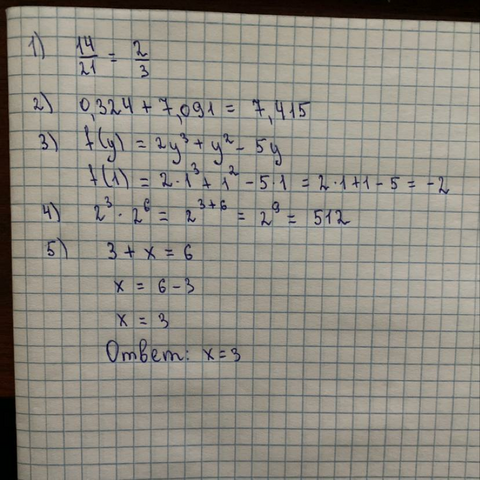 1) 14/21 = 2/3
2) 0,324 + 7,091 = 7,415
3) f(y) = 2y³ + y² - 5y
f(1) = 2·1³ + 1² - 5·1 = 2·1+1-5 = -2
4) 2³ · 2⁶ = 2³⁺⁶ = 2⁹ = 512
5) 3 + x = 6
x = 6-3
x = 3
Ответ: x=3